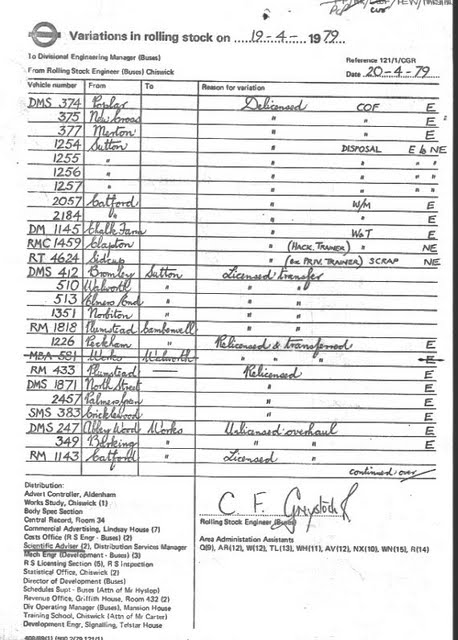 Variations in rolling stock on 19-4-1979
To Divisional Engineering Manager (Buses)
Reference 121/1/CGR
From Rolling Stock Engineer (Buses) Chiswick
Date 20-4-79
Vehicle number From To Reason for variation
DMS 374 Poplar Delicensed COF E
375 New Cross " " E
377 Merton " " E
1254 Sutton " DISPOSAL E to NE
1255 " " " " "
1256 " " " " "
1257 " " " " "
2057 Catford " W/M E
2184 " " " E
DM 1145 Chalk Farm " W&T E
RMC 1459 Clapton " (HACK. TRAINER) " NE
RT 4624 Sidcup " (ex PRIV. TRAINER) SCRAP NE
DMS 412 Bromley Sutton Licensed transfer
510 Walworth " " "
513 Elmers End " " "
1351 Norbiton " " "
RM 1818 Plumstead Camberwell " "
1226 Peckham " Relicensed & transferred E
MBA 581 Works Walworth " " " E
RM 433 Plumstead — Relicensed E
DMS 1871 North Street " E
2457 Palmers Green " E
SMS 383 Cricklewood " E
DMS 247 Abbey Wood Works Unlicensed overhaul E
349 Barking " " " E
RM 1143 Catford " Licensed "
continued over
Distribution:
Advert Controller, Aldenham
Works Study, Chiswick (1)
Body Spec Section
Central Record, Room 34
Commercial Advertising, Lindsay House (7)
Costs Office (R S Engr - Buses) (2)
Scientific Adviser (2), Distribution Services Manager
Mech Engr (Development - Buses) (3)
R S Licensing Section (5), R S Inspection
Statistical Office, Chiswick (2)
Director of Development (Buses)
Schedules Supt - Buses (Attn of Mr Hyslop)
Revenue Office, Griffith House, Room 432 (2)
Div Operating Manager (Buses), Mansion House
Training School, Chiswick (Attn of Mr Carter)
Development Engr, Signalling, Telstar House
C. F. Greystock
Rolling Stock Engineer (Buses)
Area Administation Assistants
Q(9), AR(12), W(12), TL(13), WH(11), AV(12), NX(10), WN(15), R(14)